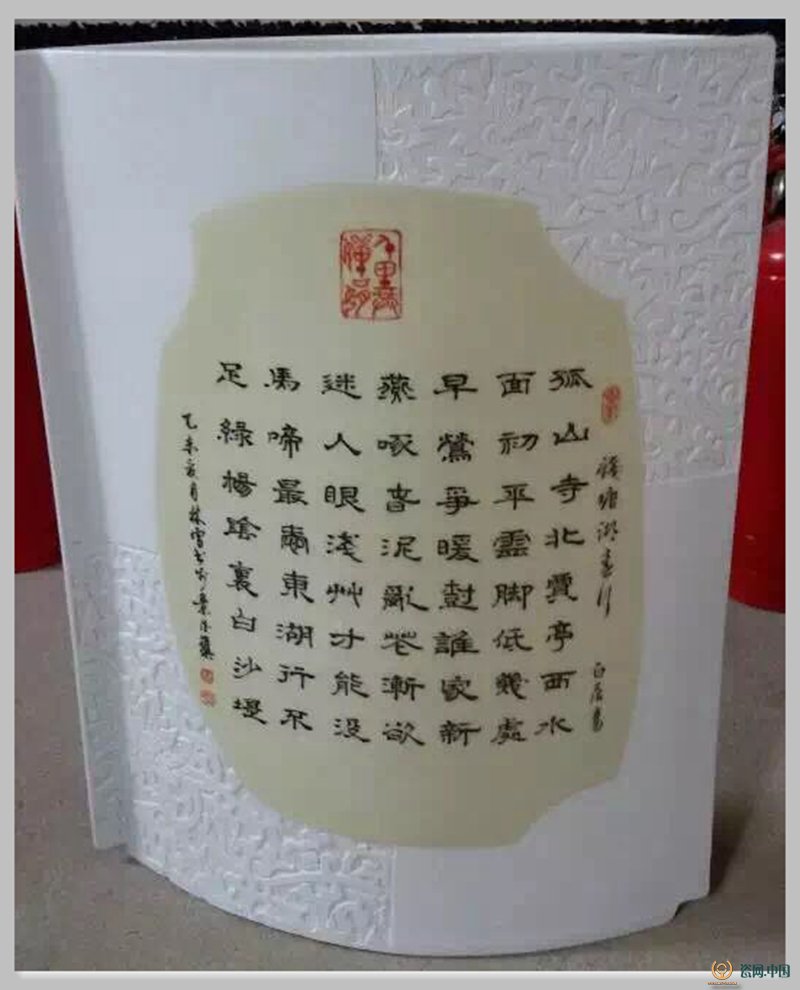 錢塘湖春行 白居易
孤山寺北賈亭西水
面初平雲脚低幾處
早鶯爭暖樹誰家新
燕啄春泥亂花漸欲
迷人眼淺艸才能沒
馬啼最愛東湖行不
足綠楊陰裏白沙堤
乙未夏月林雪書於景德鎮
瓷网.中国